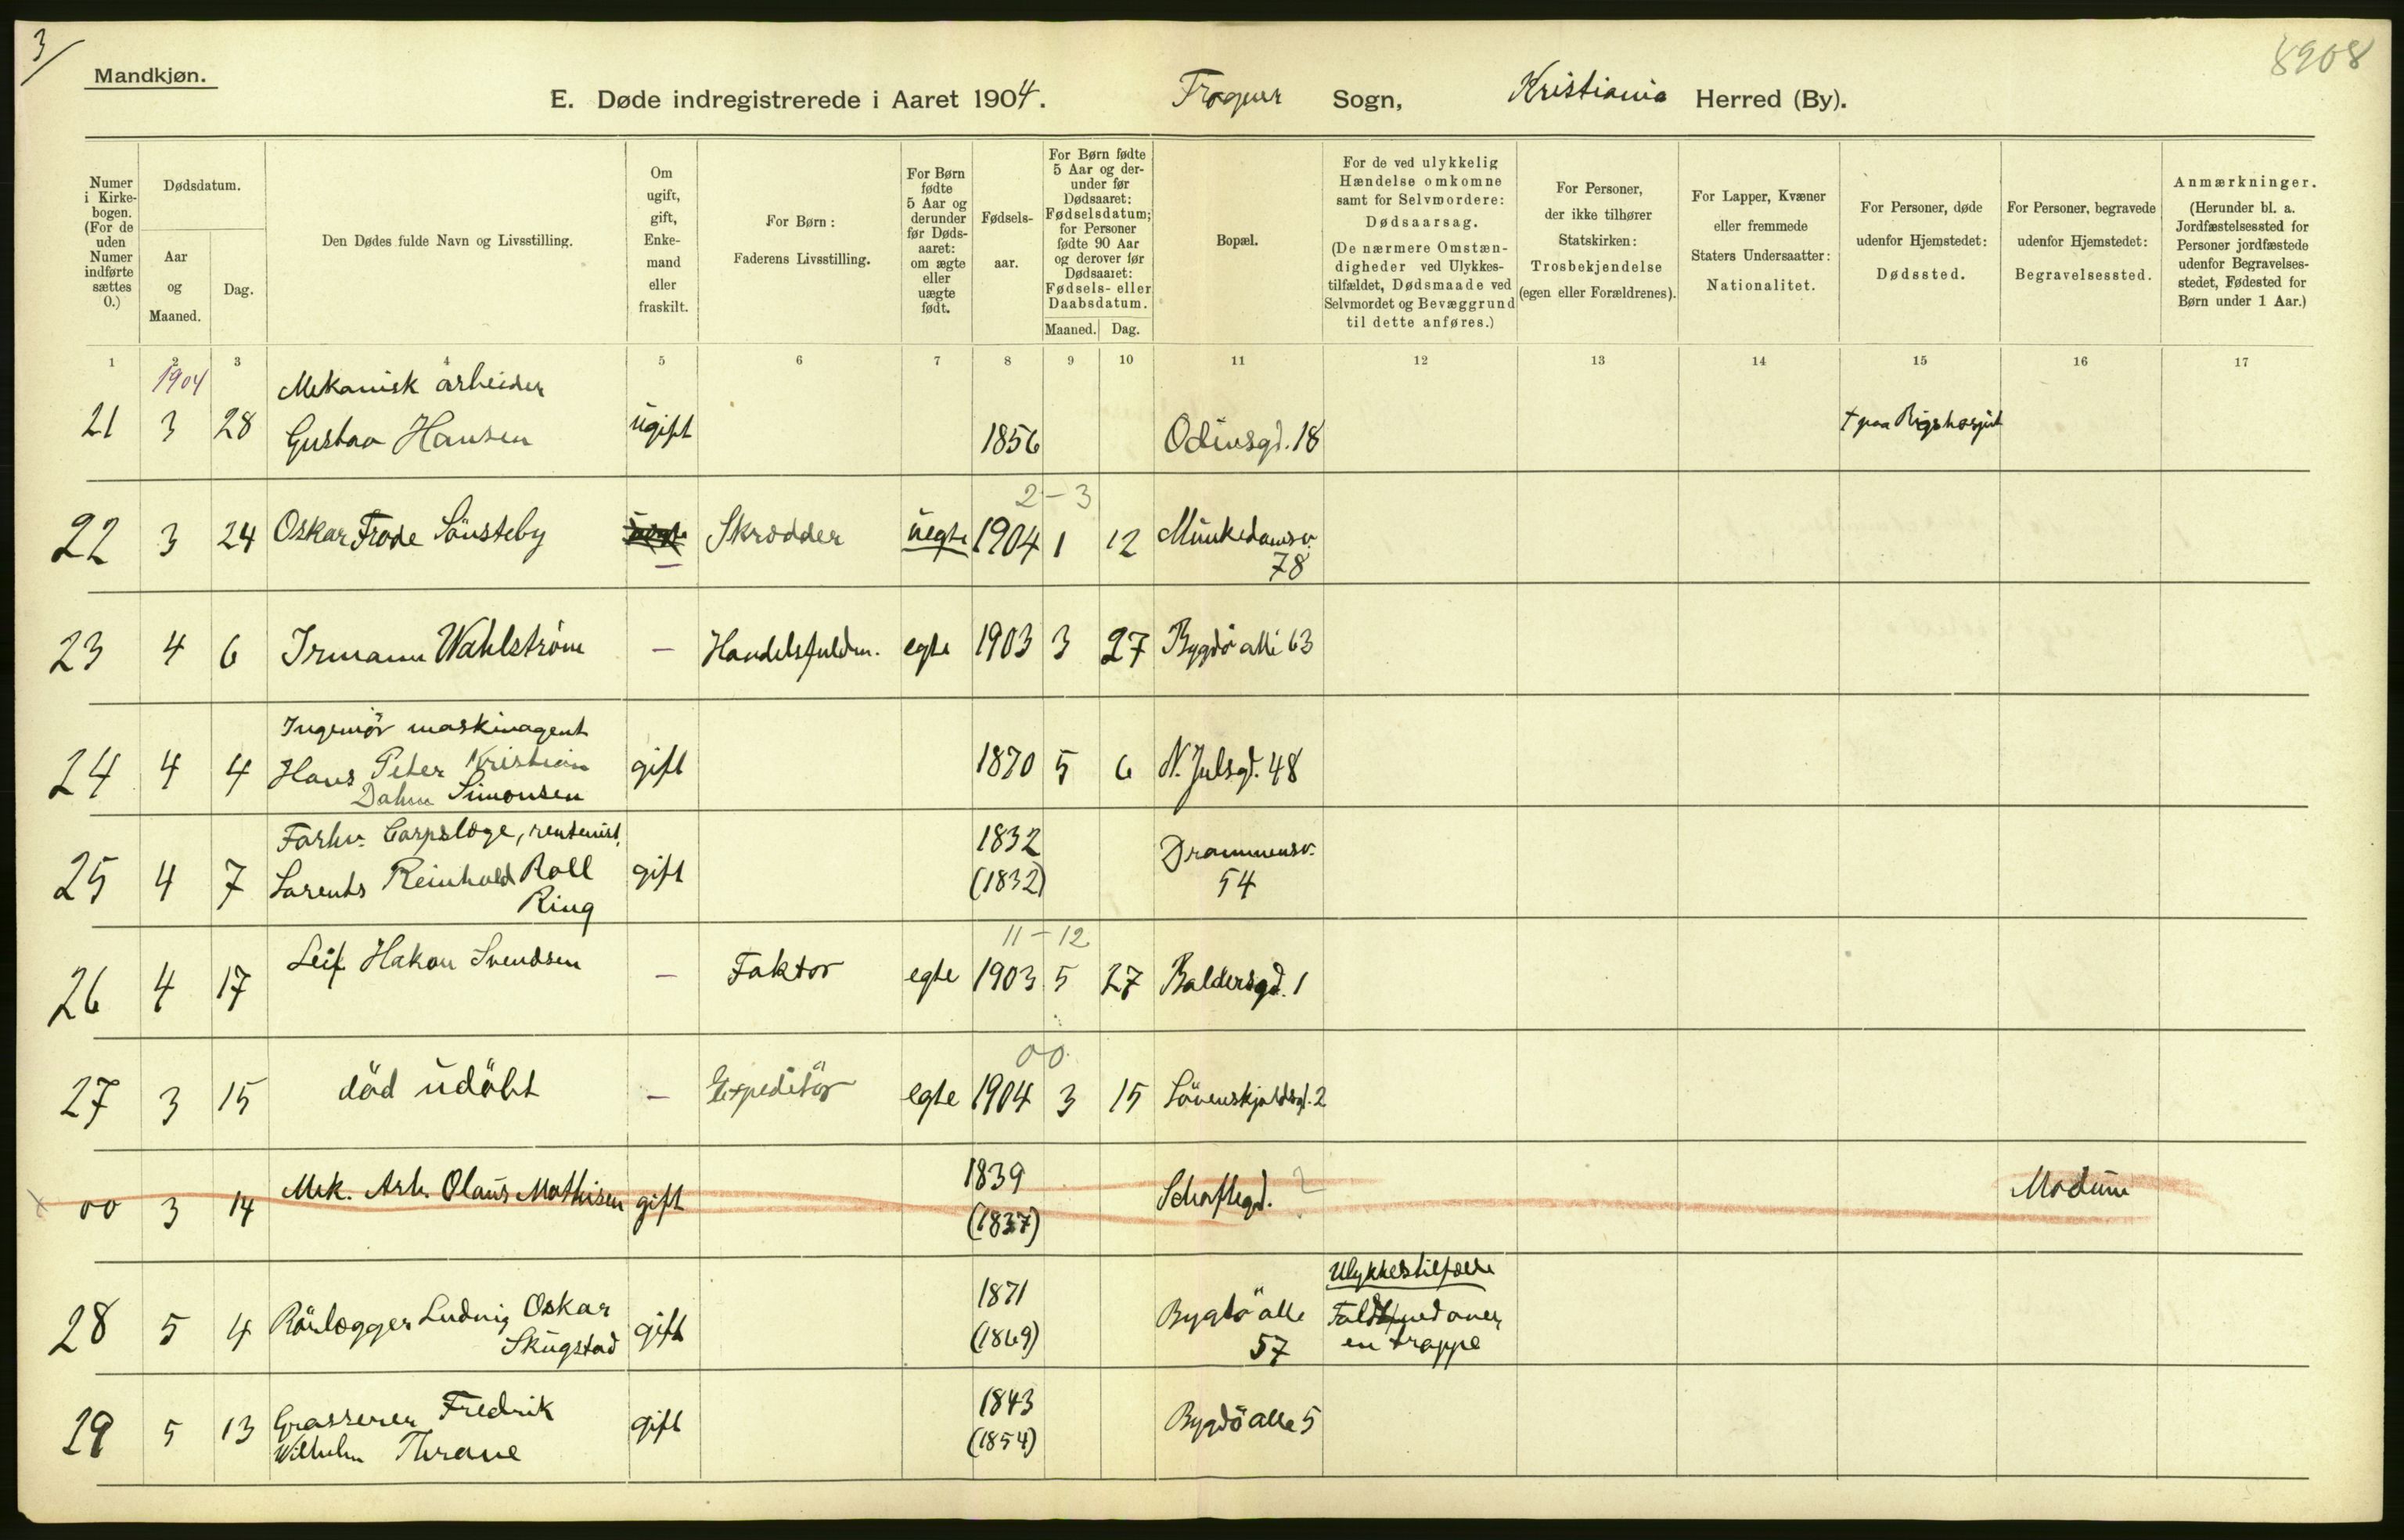 3/
8908
Mandkjøn.
E. Døde indregistrerede i Aaret 1904. Frogner Sogn, Kristiania Herred (By).
Numer i Kirkebogen. (For de uden Numer indførte sættes 0.)
Dødsdatum.
Aar og Maaned.
Dag.
Den Dødes fulde Navn og Livsstilling.
Om ugift, gift, Enkemand eller fraskilt.
For Børn: Faderens Livsstilling.
For Børn fødte 5 Aar og derunder før Dødsaaret: om ægte eller uægte født.
Fødselsaar.
For Børn fødte 5 Aar og derunder før Dødsaaret: Fødselsdatum; for Personer fødte 90 Aar og derover før Dødsaaret: Fødsels- eller Daabsdatum.
Maaned. Dag.
Bopæl.
For de ved ulykkelig Hændelse omkomne samt for Selvmordere: Dødsaarsag. (De nærmere Omstændigheder ved Ulykkestilfældet, Dødsmaade ved Selvmordet og Bevæggrund til dette anføres.)
For Personer, der ikke tilhører Statskirken: Trosbekjendelse (egen eller Forældrenes).
For Lapper, Kvæner eller fremmede Staters Undersaatter: Nationalitet.
For Personer, døde udenfor Hjemstedet: Dødssted.
For Personer, begravede udenfor Hjemstedet: Begravelsessted.
Anmærkninger. (Herunder bl. a. Jordfæstelsessted for Personer jordfæstede udenfor Begravelsesstedet, Fødested for Børn under 1 Aar.)
1 2 3 4 5 6 7 8 9 10 11 12 13 14 15 16 17
1904
Mekanisk arbeider
21 3 28 Gustav Hansen ugift 1856 Odinsgd. 18 † paa Rigshospit
2-3
22 3 24 Oskar Frode Sönsteby — Skrædder uegte 1904 1 12 Munkedamsv.
78
23 4 6 Irmann Wahlström — Handelsfuldm. egte 1903 3 27 Bygdö alle 63
Ingeniör maskinagent
24 4 4 Hans Peter Kristian gift 1870 5 6 N. Julsgd. 48
Dahm Simonsen
Forhv. Corpslæge, rentenist, 1832
25 4 7 Lorents Reinhold Roll gift (1832) Drammensv.
Ring 54
11-12
26 4 17 Leif Hakon Svendsen — Faktor egte 1903 5 27 Baldersgd. 1
00
27 3 15 död udöbt — Expeditör egte 1904 3 15 Lövenskjoldsgd. 2
1839
00 3 14 Mek. Arb. Olaus Mathisen gift (1837) Schaftlgd. 2 Modum
Ulykkestilfælde
1871
28 5 4 Rörlægger Ludvig Oskar gift Bygdö alle Faldt ned over
Skugstad (1869) 57 en trappe
1843
29 5 13 Grasserer Fredrik gift Bygdö alle 5
Wilhelm Thrane (1854)